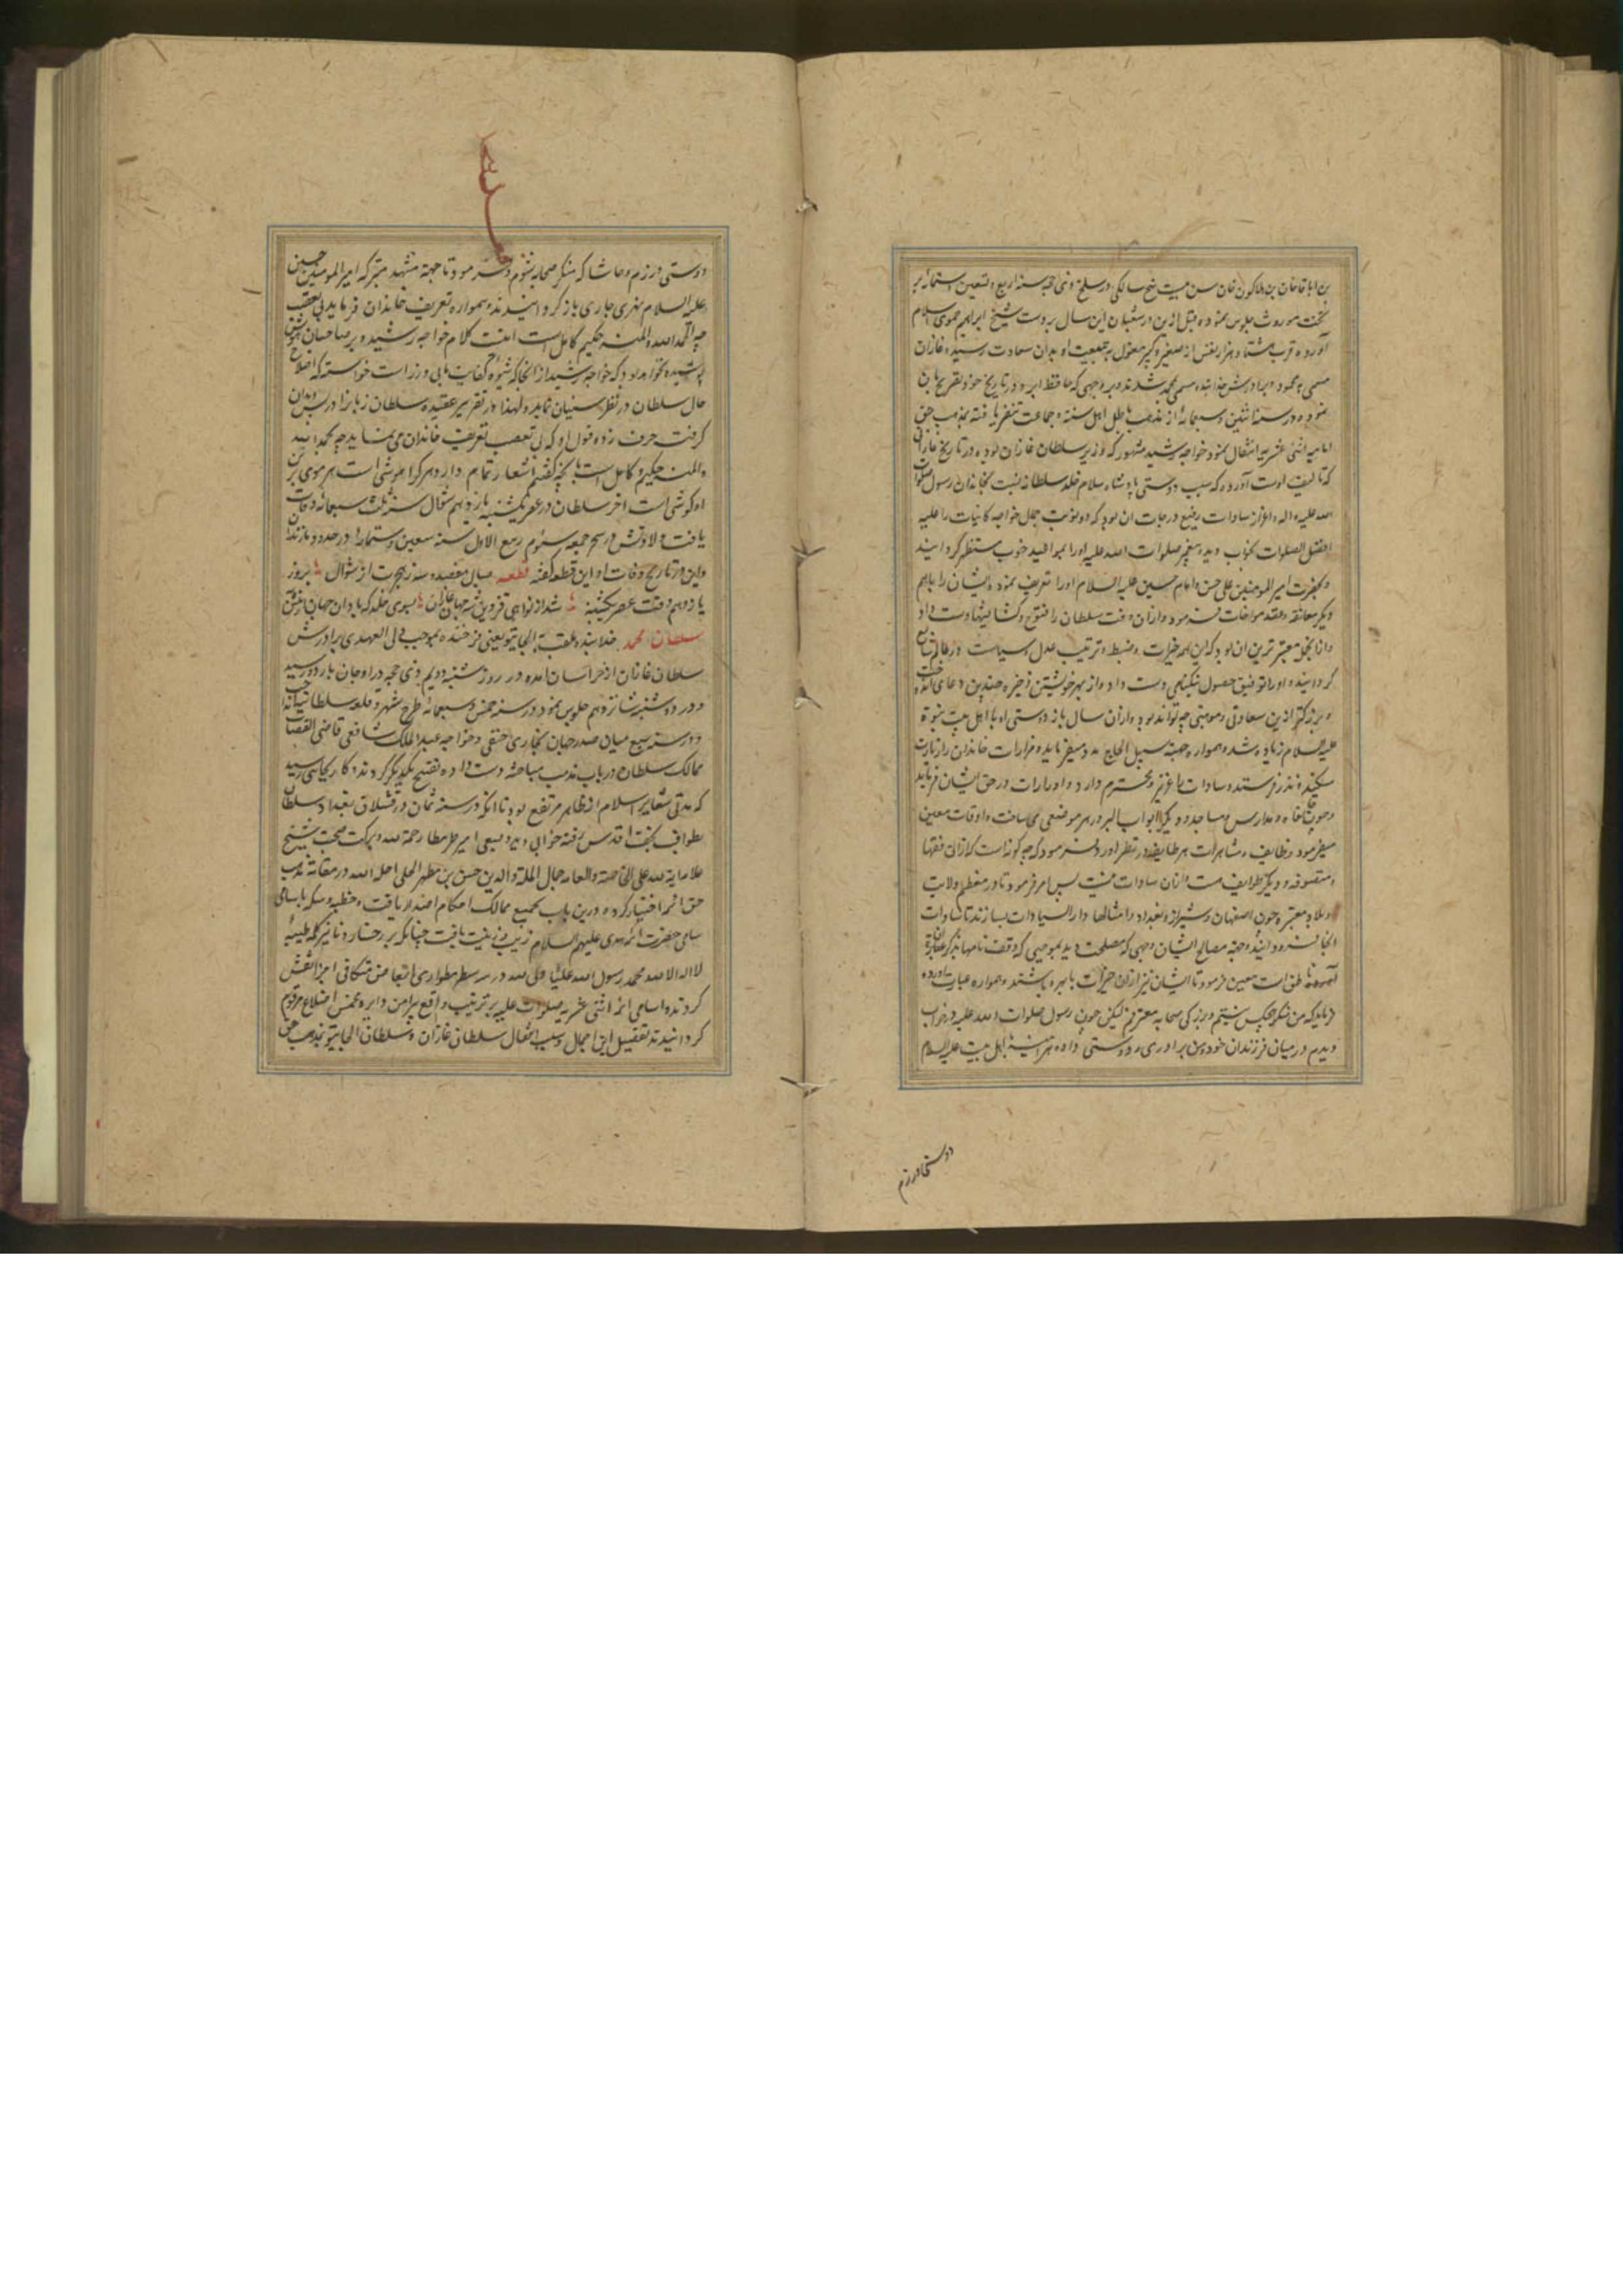 بن اباقاخان بن هلاکوخان سن بیست پنج سالکی در سلخ ذی حجه سنه اربع و تسعین ستمائه بر
تخت موروث جلوس نموده و قبل ازین در شعبان این سال بر دست شیخ ابراهیم حموی اسلام
آورده قرب هشتاد هزار نفس از صغیر و کبیر مغول بجمعیت او بدان سعادت رسید و غازان
مسمی بمحمود و برادرش خدابنده مسمی بمحمد شدند و بروجهی که حافظ ابرو در تاریخ خود تصریح بان
نموده در سنه اثنین و سبعمائه از مذهب باطل اهل سنه و جماعت تنفر یافته بمذهب حق
امامیه اثنی عشریه انتقال نمود و خواجه رشید مشهور که وزیر سلطان غازان بوده در تاریخ غازانی
که تالیف اوست آورده که سبب دوستی پادشاه اسلام خلد سلطانه نسبت بخاندان رسول صلوات
الله علیه و اله و اعزاز سادات رفیع درجات ان بود که دو نوبت جمال خواجه کاینات را علیه
افضل الصلوات بخواب دیده پیغمبر صلوات الله علیه او را بمواعید خوب مستظهر کردانید
و بحضرت امیر المومنین علی حسن و امام حسین علیه السلام او را تعریف نموده ایشان را باهم
دیکر معانقه و عقد مواخات فرمود و ازان وقت سلطان را فتوح و کشایشها دست داد
و ازانجمله معتبر ترین ان بود که این همه خیرات و ضبط و ترتیب عدل و سیاست در عالم شایع
کردانیده او را توفیق حصول نیکنامی دست داد و از بهر خویشتن ذخیره چندین دعای خیر
و بزرکتر ازین سعادتی و موهبتی چه تواند بود و ازان سال باز دوستی او با اهل بیت نبوة
علیه السلام زیاده شد و همواره جهت سبیل الحاج مدد میفرماید و مزارات خاندان را زیارت
میکند و نذر فرستد و سادات را عزیز و محترم دارد و ادرارات در حق ایشان فرماید
و چون خانقاه و مدارس و مساجد و دیکر ابواب البر در هر موضعی می ساخت و اوقات معین
میفرمود وظایف و مشاهرات هر طایفه در نظر اورد فرمود که چه کونه است که ازان فقها
و متصوفه و دیکر طوایف هست و ازان سادات نیست پس امر فرمود تا در معظم ولایت
و بلاد معتبره چون اصفهان و شیراز و بغداد و امثالها دار السیادات بسازند تا سادات
انجا فرود ایند و جهة مصالح ایشان وجهی که مصلحت دید بموجبی که وقف نامها بذکر ان
ناطق است معین فرمود تا ایشان نیز ازان خیرات با بهره باشند و همواره عبارت
فرماید که من منکر هیچکس نیستم و بزرکی صحابه معترفم لیکن چون رسول صلوات الله علیه در خواب
دیدم و در میان فرزندان خود و من برادری و دوستی داده هر آینه با اهل بیت علیه السلام
دوستی ورزم
دوستی ورزم و حاشا که منکر صحابه شوم و فرمود تا جهة مشهد متبرکه امیر المومنین حسین
علیه السلام نهری جاری باز کردانیدند و همواره تعریف خاندان فرماید بی تعصب
چه الحمد الله و المنه حکیم و کامل است انتهت کلام خواجه رشید و بر صاحبان هوش
پوشیده نخواهد بود که خواجه رشید از انجا که شیوه کفایت مابی وزراست خواسته که اصلاح
حال سلطان در نظر سنیان نماید و لهذا در تقریر عقیده سلطان زبان را در پس دندان
کرفته حرف زده و قول او که بی تعصب تعریف خاندان می نماید چه بحمد الله
والمنه حکیم و کامل است بانچه کفتم اشعار تمام دارد هر کرا هوشی است هر موی بر تن
او کوشی است اخر سلطان در عصر یکشنبه یازدهم شوال سنه ثلث سبعمائه وفات
یافت و ولادتش در سحر جمعه سئوم ربیع الاول سنه سبعین و ستمائه در حدود مازندران
و این در تاریخ وفات او این قطعه کفته قطعه بسال هفصد و سه ز هجرت از شوال بروز
یازدهم وقت عصر یکشنبه شد از نواحی قزوین شه جهان غازان بسوی خلد که باد ان جهان
سلطان محمد خدابنده ملقب بالجایتو یعنی فرخنده بموجب ولی العهدی برادرش
سلطان غازان از خراسان امده در روز شنبه دویم ذی حجه در اوجان باردو رسید
و در دوشنبه شانزدهم جلوس نمود در سنه خمس و سبعمائه طرح شهر و قلعه سلطانیه انداخت
و در سنه سبع میان صدر جهان بخاری حنفی و خواجه عبد الملک شافعی قاضی القضاة
ممالک سلطان در باب مذهب مباحثه دست داده تقبیح یکدیکر کردند و کار بجایی رسید
که مدتی شعایر اسلام از ظاهر مرتفع بود تا انکه در سنه ثمان در قشلاق بغداد سلطان
بطواف نجف اقدس رفته خوابی دید و بسعی امیر طرمطار رحمة الله و برکت صحبت شیخ
علامه ایة الله علی الخاصة و العامه جمال الملة و الدین حسن بن مطهر الحلی احله الله در مقامه مذهب
حق ائمه اختیار کرده و درین باب بجمیع ممالک احکام اصدار یافت و خطبه و سکه باسامی
سامی حضرت ائمه هدی علیهم السلام زیب و زینت یافت چنانکه بر رخسار دنانیر کلمه طیبه
لا اله الا الله محمد رسول الله علیا ولی الله در سه سطر مطواری
کردند و اسامی ائمه اثنی عشریه صلوات علیه بر ترتیب واقع پیرامن دایره مخمس اضلاع مرقوم
کردانیدند تفصیل این اجمال و سبب انتقال سلطان غازان و سلطان الجایتو بمذهب حق